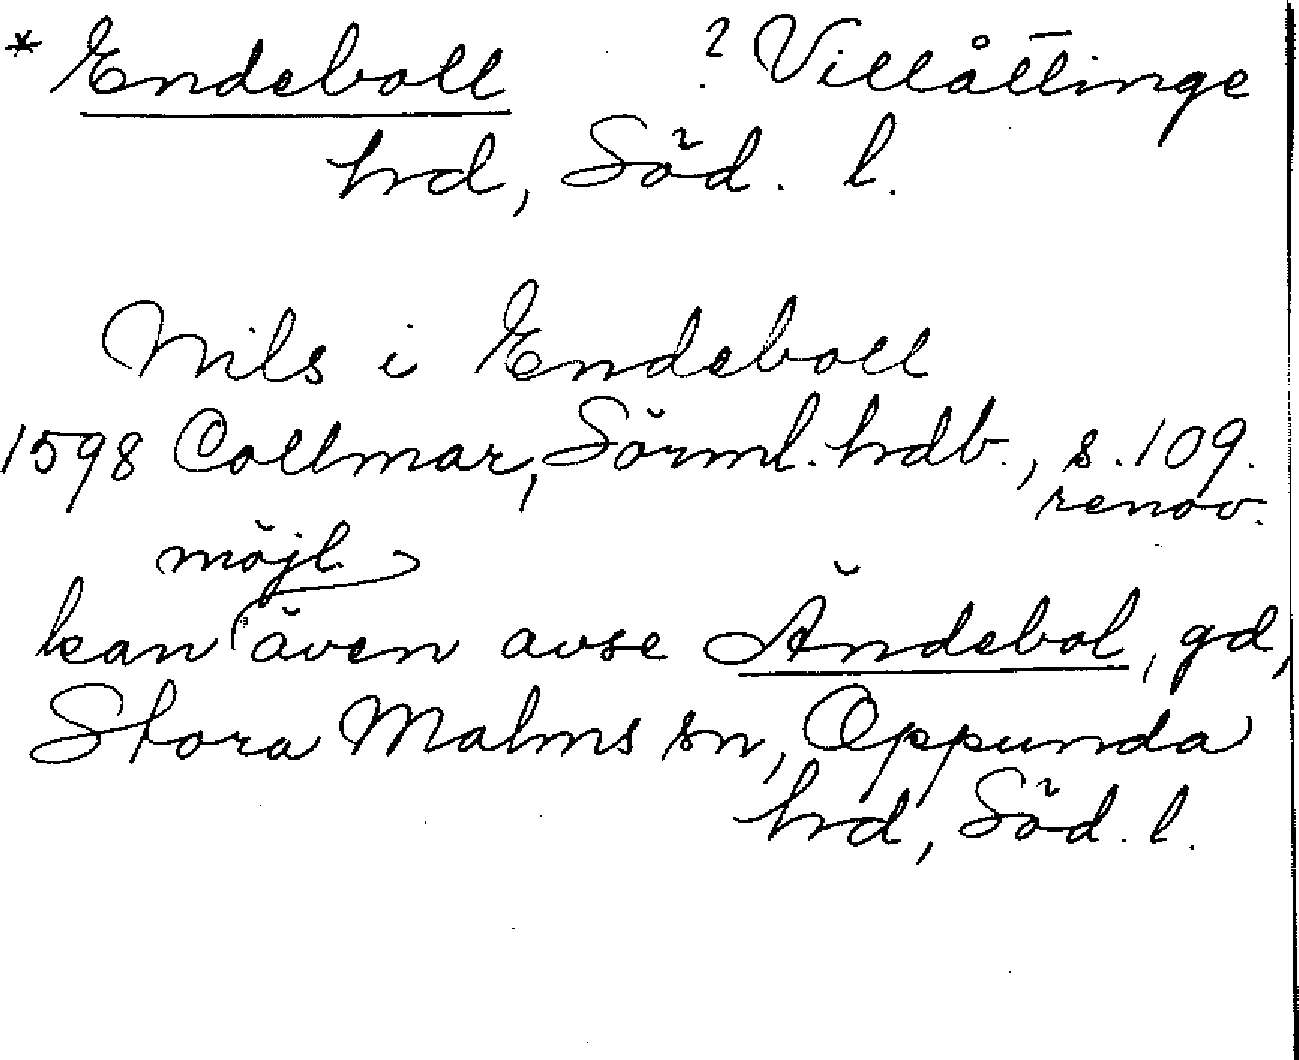 * Endeboll ? Villåttinge
hrd, Söd. l.
Nils i Endeboll
1598 Collmar, Sörml. hdb., s. 109.
renov.
möjl.
kan även avse Ändebol, gd,
Stora Malms sn, Oppunda
hrd, Söd. l.